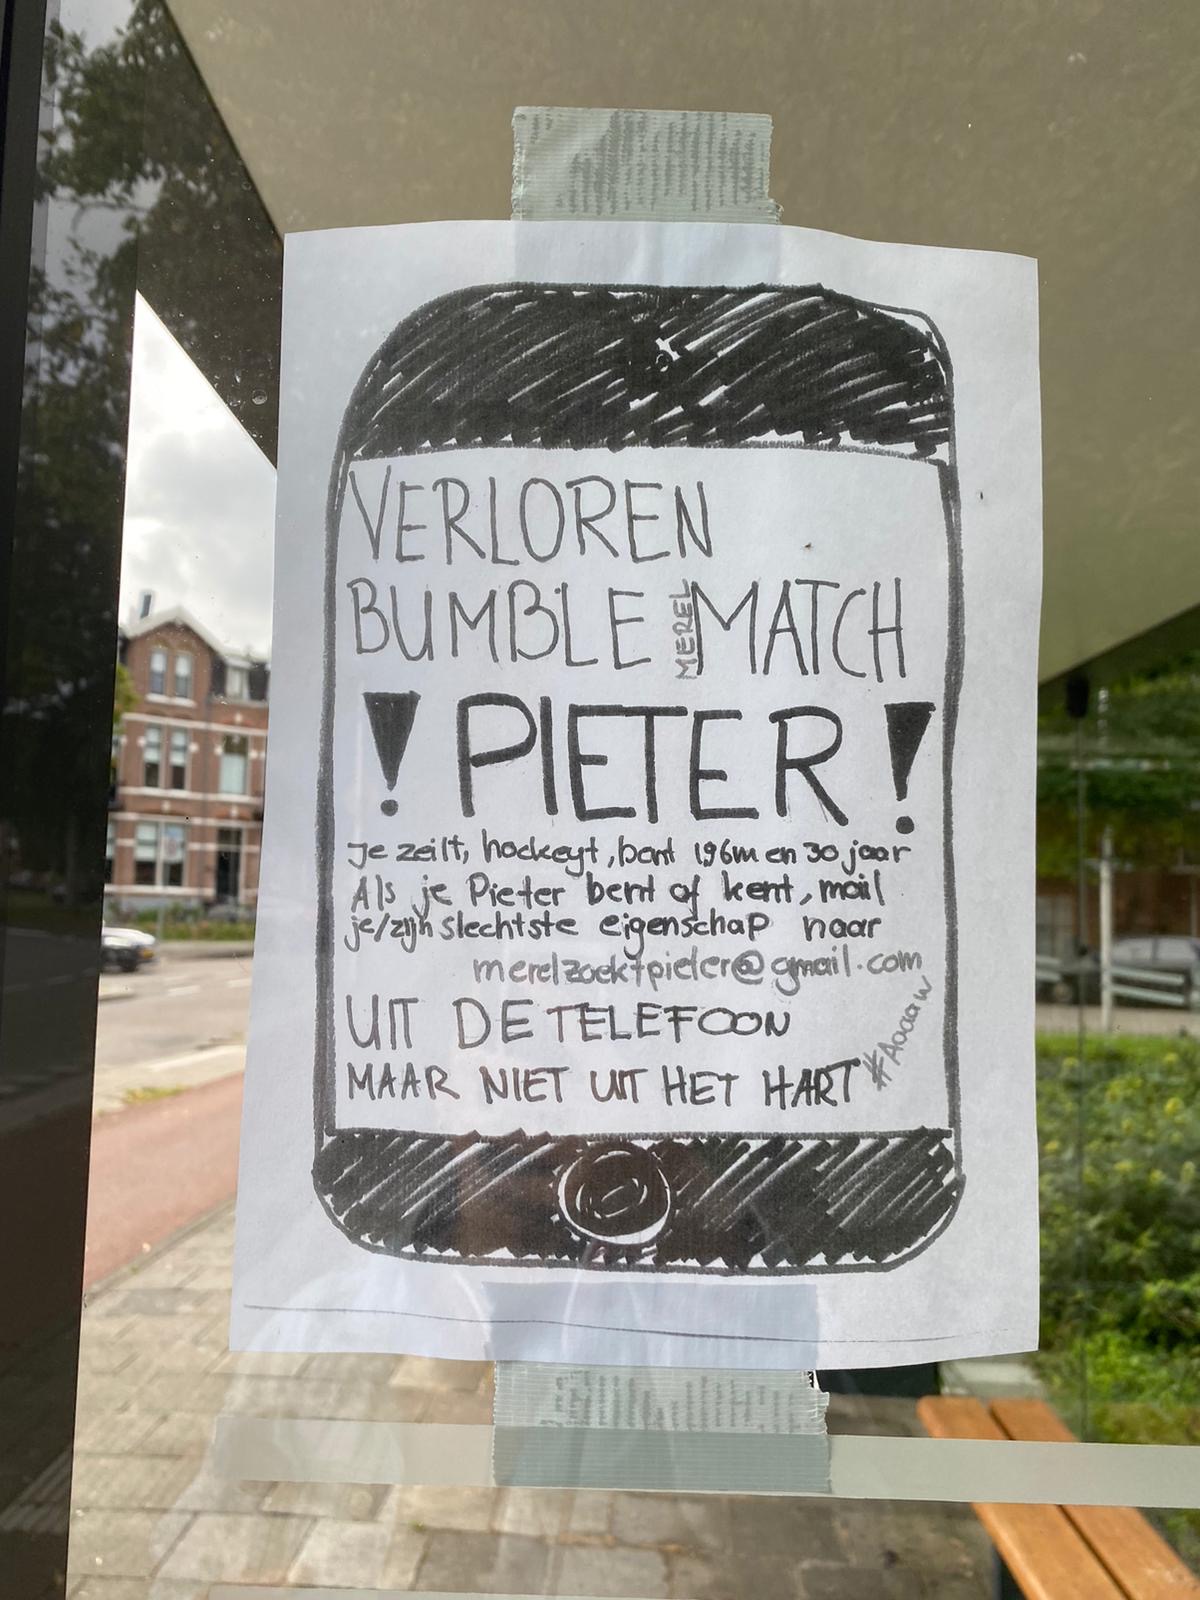 VERLOREN
BUMBLE MEREL MATCH
! PIETER !
je zeilt, hockeyt, bent 196m en 30 jaar
Als je Pieter bent of kent, mail
je/zijn slechtste eigenschap naar
merelzoektpieter@gmail.com
UIT DE TELEFOON
MAAR NIET UIT HET HART
#Aaaaw